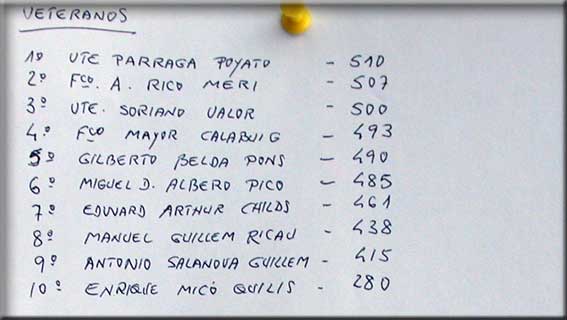 VETERANOS
1º VTE PARRAGA POYATO - 510
2º Fco. A. RICO MERI - 507
3º VTE. SORIANO VALOR - 500
4º Fco MAYOR CALABUIG - 493
5º GILBERTO BELDA PONS - 490
6º MIGUEL D. ALBERO PICO - 485
7º EDWARD ARTHUR CHILDS - 461
8º MANUEL GUILLEM RICAU - 438
9º ANTONIO SALANOVA GUILLEM - 415
10º ENRIQUE MICÓ QUILIS - 280